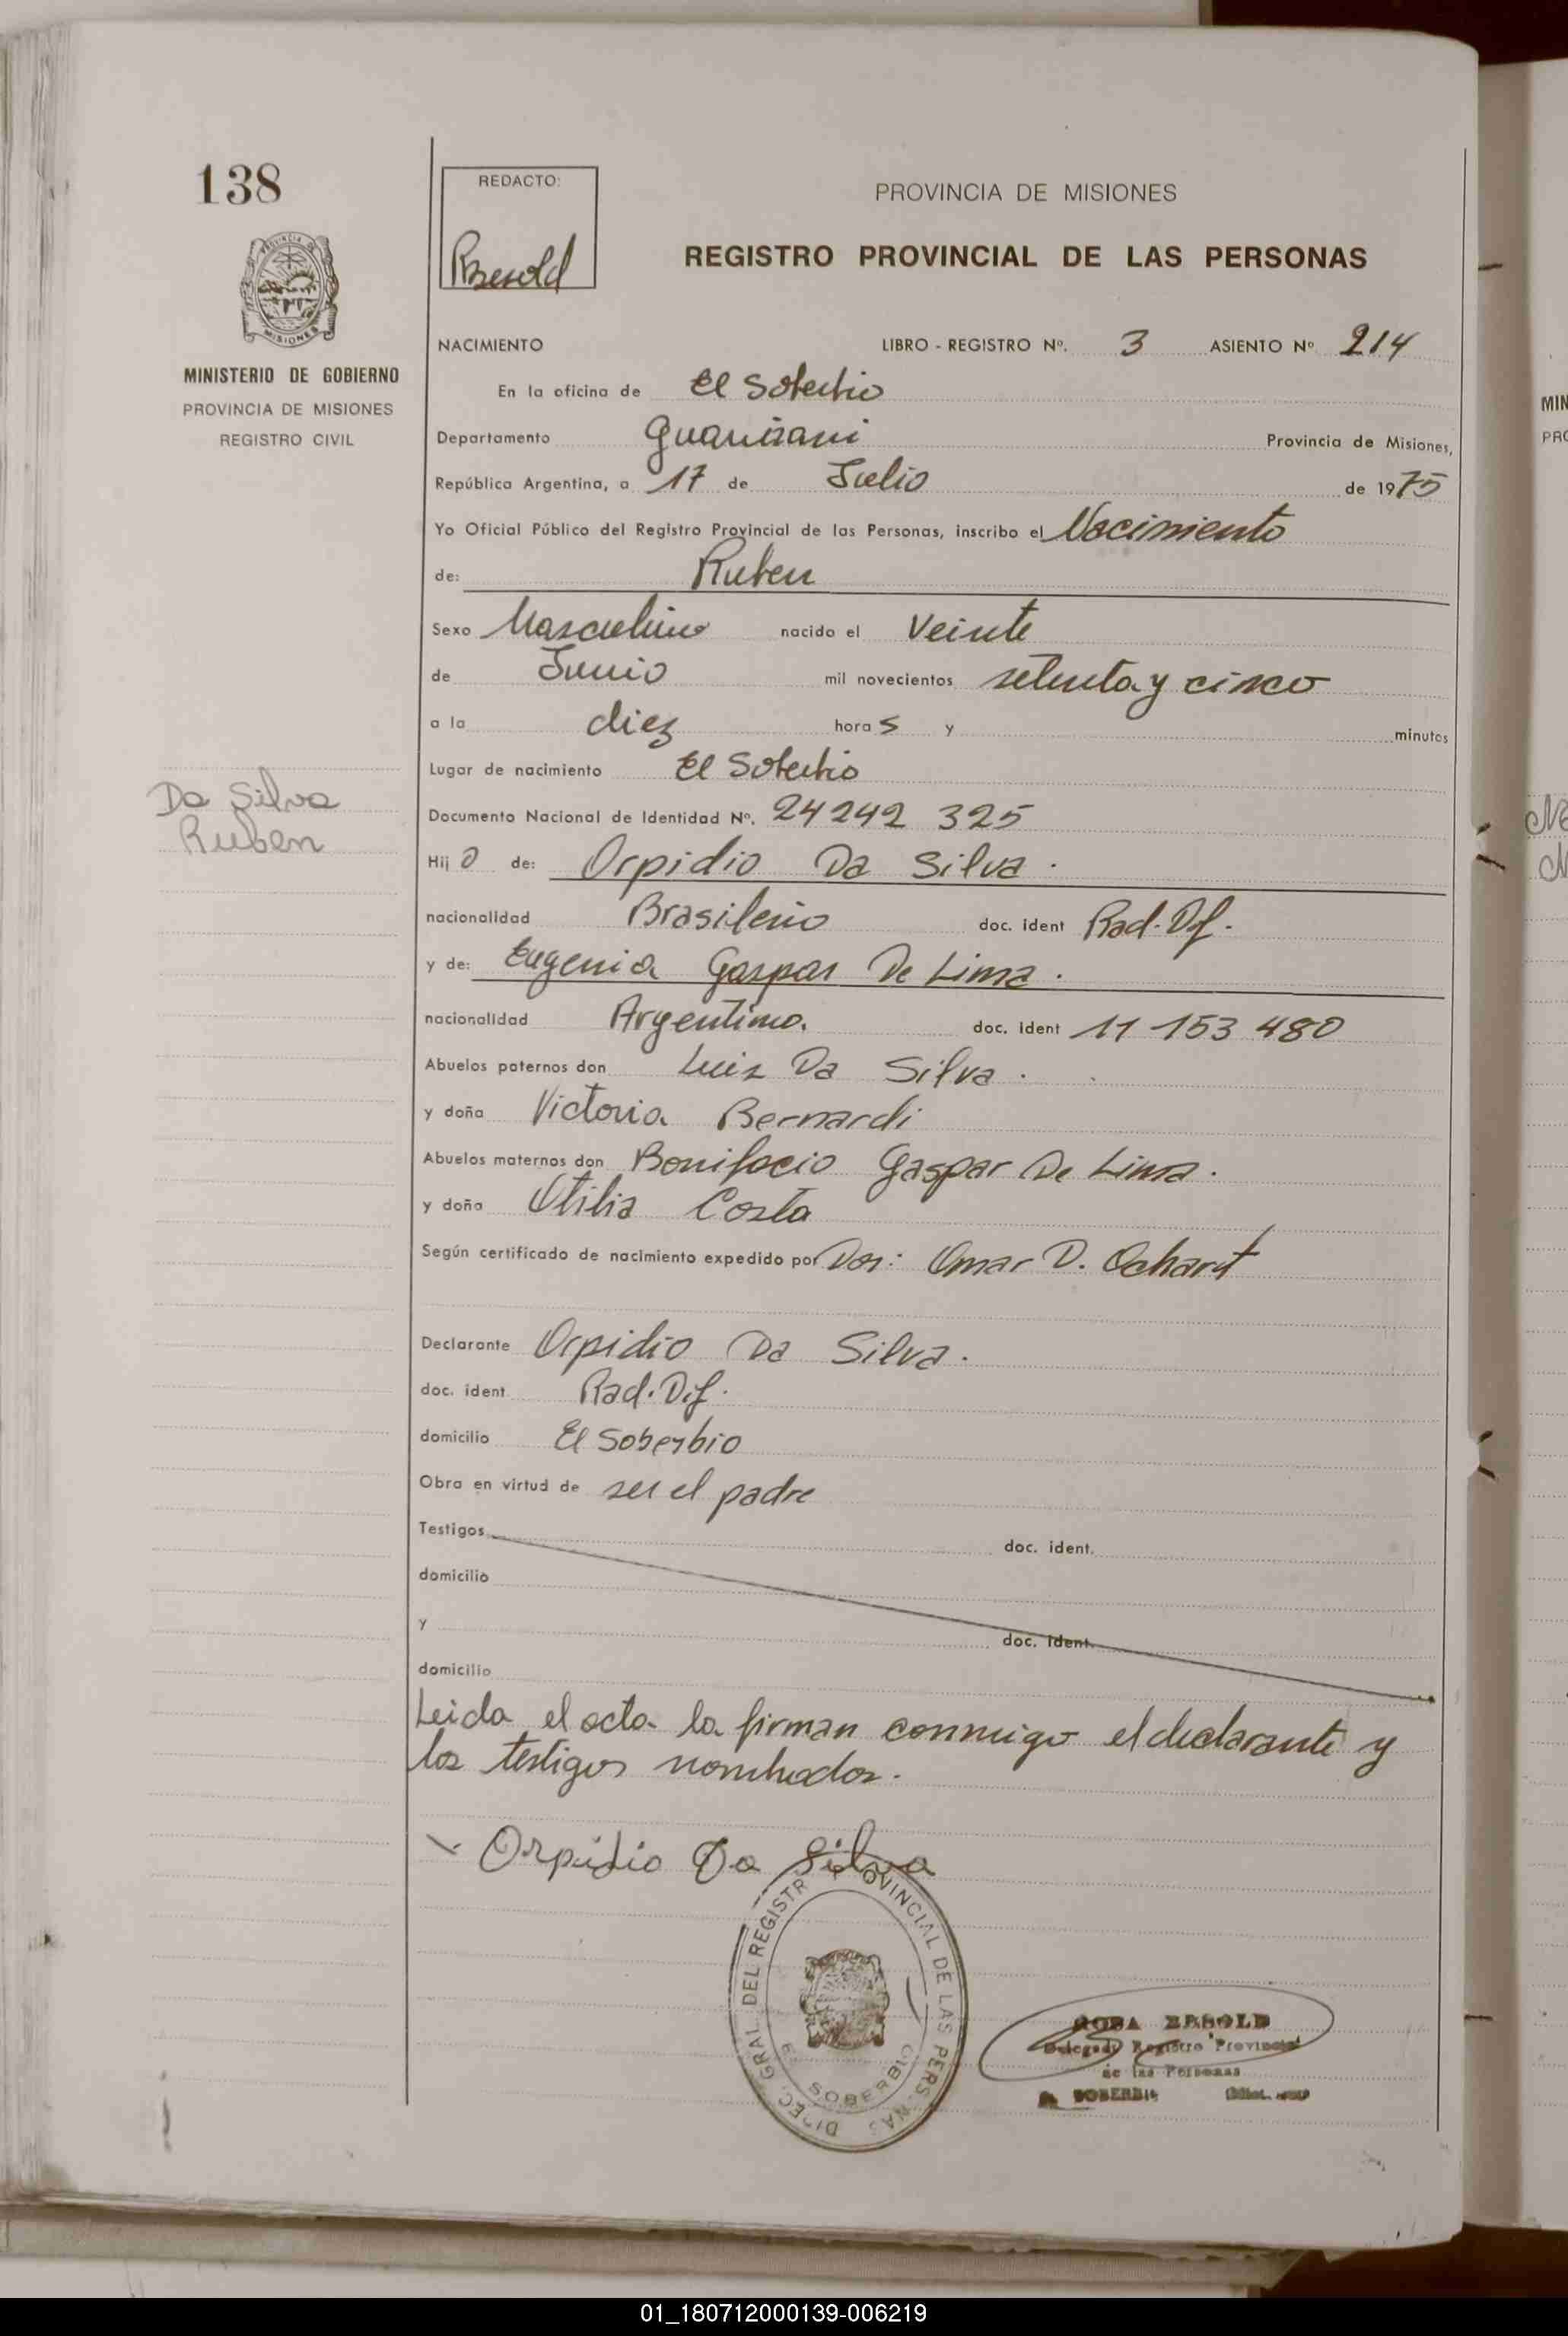 138
REDACTO:
Besold
PROVINCIA DE MISIONES
REGISTRO PROVINCIAL DE LAS PERSONAS
MISIONES
MINISTERIO DE GOBIERNO
PROVINCIA DE MISIONES
REGISTRO CIVIL
NACIMIENTO LIBRO - REGISTRO Nº. 3 ASIENTO Nº 214
En la oficina de El Soberbio
Departamento Guarani Provincia de Misiones,
República Argentina, a 17 de Julio de 1975
Yo Oficial Público del Registro Provincial de las Personas, inscribo el Nacimiento
de: Ruben
Sexo Masculino nacido el Veinte
de Junio mil novecientos setenta y cinco
a la diez horas y minutos
Lugar de nacimiento El Soberbio
Da Silva
Ruben
Documento Nacional de Identidad Nº. 24242 325
Hijo de: Orpidio Da Silva.
nacionalidad Brasileño doc. ident Rad. Df.
y de: Eugenia Gaspar De Lima.
nacionalidad Argentina. doc. ident 11 153 480
Abuelos paternos don Luiz Da Silva.
y doña Victoria Bernardi
Abuelos maternos don Bonifacio Gaspar De Lima.
y doña Otilia Costa
Según certificado de nacimiento expedido por Dor: Omar D. Ochart
Declarante Orpidio Da Silva.
doc. ident Rad. D.f.
domicilio El Soberbio
Obra en virtud de ser el padre
Testigos doc. ident.
domicilio
y doc. ident.
domicilio
Leida el acta la firman conmigo el declarante y
los testigos nombrados.
Orpidio Da Silva
DIREC. GRAL. DEL REGISTRO PROVINCIAL DE LAS PERSONAS
SOBERBIO
ROSA BESOLD
Delegada Registro Provincial
de las Personas
SOBERBIO
01_180712000139-006219